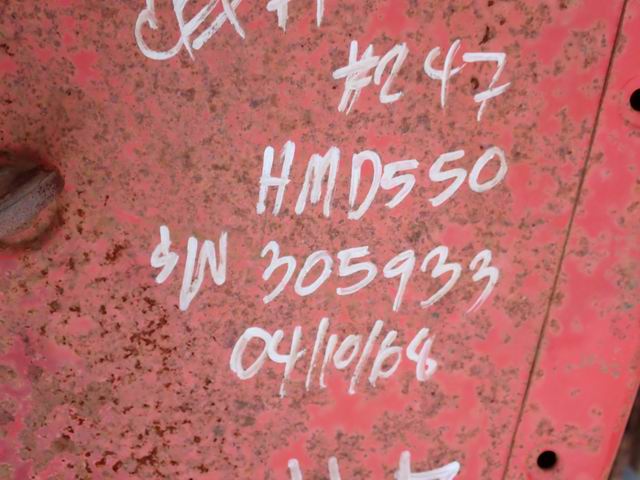 #247
HMD550
SN 305933
04/10/68